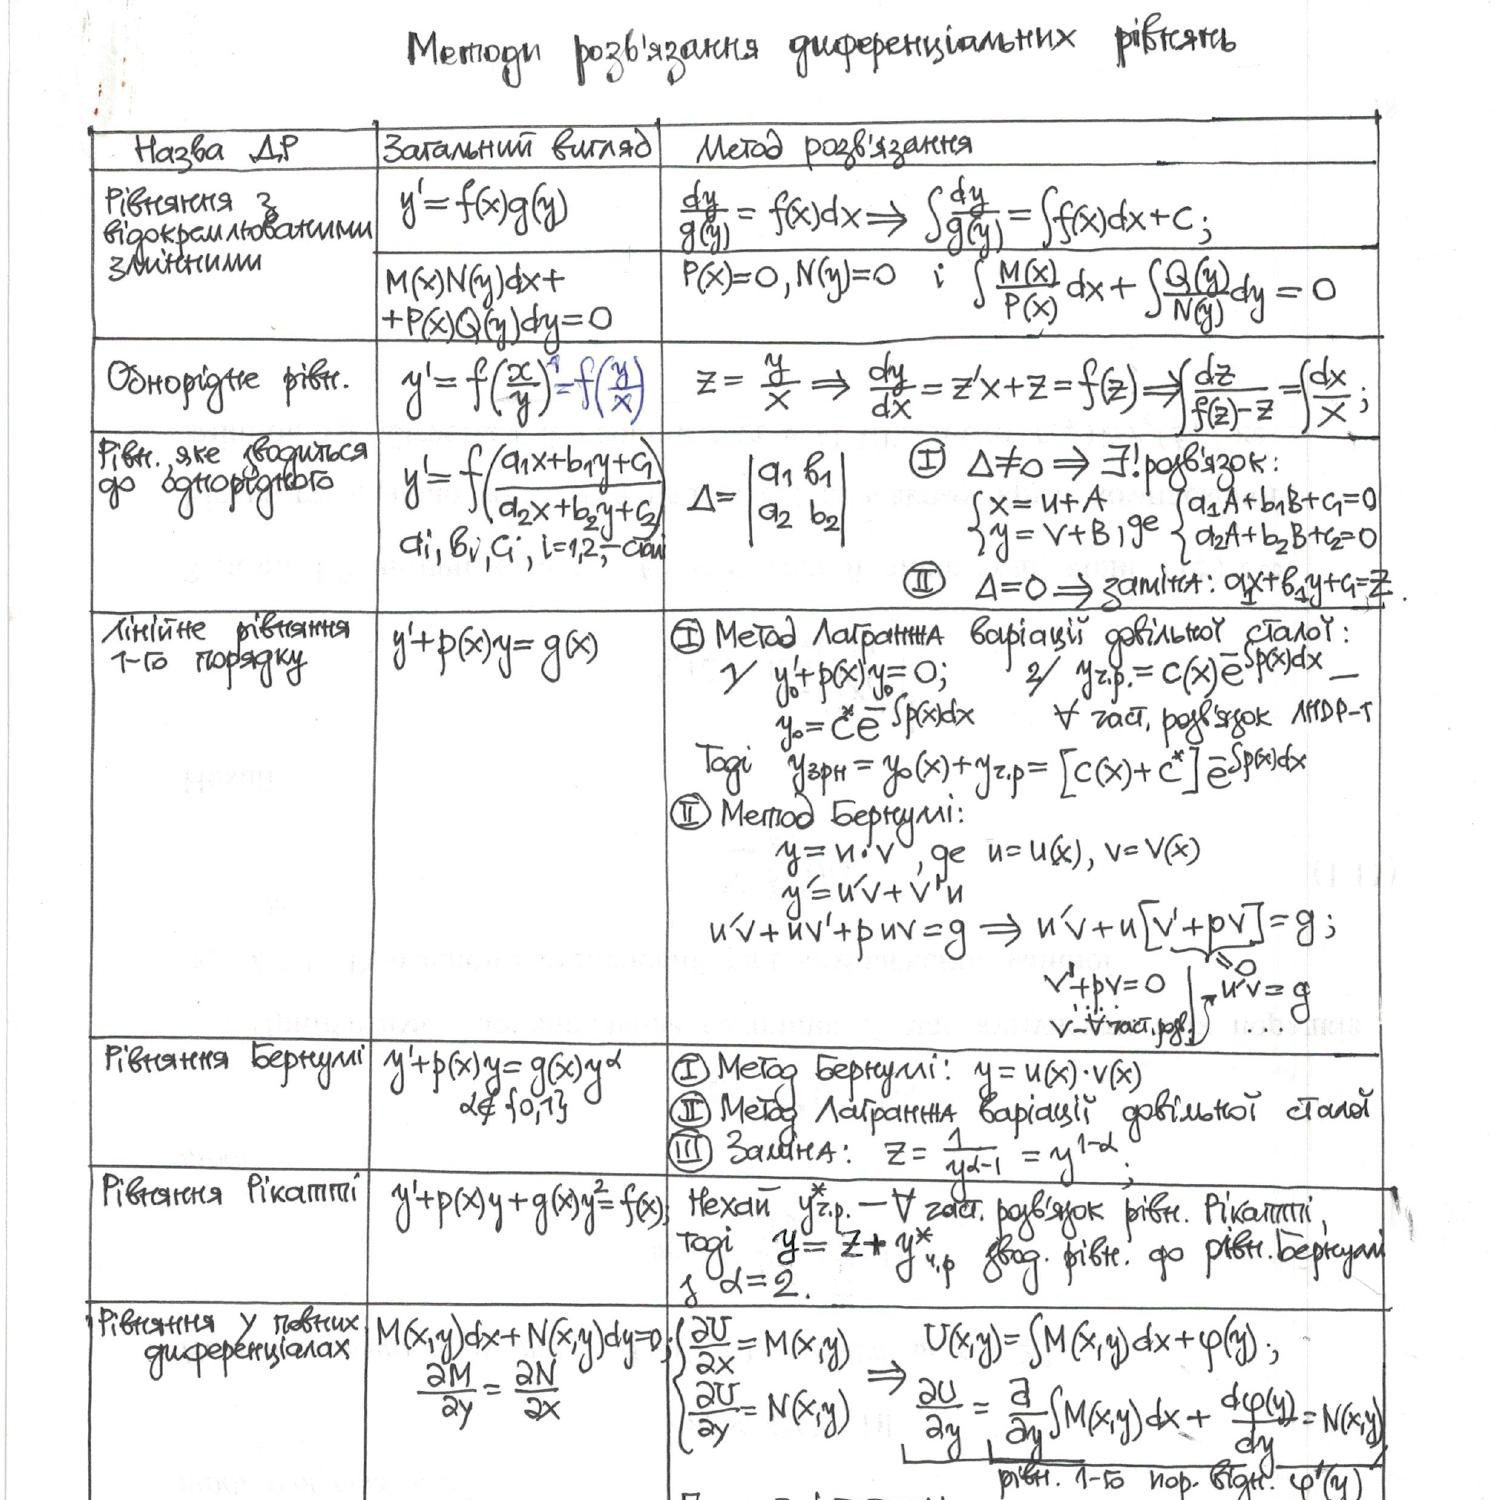 Методи розв'язання диференціальних рівнянь
Назва ДР Загальний вигляд Метод розв'язання
Рівняння з відокремлюваними змінними
y' = f(x)g(y)
dy/g(y) = f(x)dx ⇒ ∫dy/g(y) = ∫f(x)dx + c;
M(x)N(y)dx +
+ P(x)Q(y)dy = 0
P(x)=0, N(y)=0 і ∫M(x)/P(x) dx + ∫Q(y)/N(y) dy = 0
Однорідне рівн.
y' = f(x/y)¹ = f(y/x)
z = y/x ⇒ dy/dx = z'x + z = f(z) ⇒ ∫dz/(f(z)-z) = ∫dx/x;
Рівн. яке зводиться
до однорідного
y' = f((a₁x+b₁y+c₁)/(a₂x+b₂y+c₂))
aᵢ, bᵢ, cᵢ, i=1,2,- сталі
Δ = |a₁ b₁|
|a₂ b₂|
I Δ≠0 ⇒ ∃! розв'язок:
{x = u + A
{y = v + B, де {a₁A+b₁B+c₁=0
{a₂A+b₂B+c₂=0
II Δ=0 ⇒ заміна: a₁x+b₁y+c₁=z.
Лінійне рівняння
1-го порядку
y' + p(x)y = g(x)
I Метод Лагранжа варіації довільної сталої:
1/ y₀' + p(x)y₀ = 0; 2/ yч.р. = c(x)e^-∫p(x)dx —
y₀ = c*e^-∫p(x)dx ∀ част. розв'язок ЛНДР-1
Тоді yзрн = y₀(x) + yч.р = [c(x) + c*]e^-∫p(x)dx
II Метод Бернуллі:
y = u·v, де u = u(x), v = v(x)
y' = u'v + v'u
u'v + uv' + puv = g ⇒ u'v + u[v' + pv] = g;
=0
v' + pv = 0 u'v = g
v - ∀ част. розв. . . .
Рівняння Бернуллі
y' + p(x)y = g(x)y^α
α∉{0,1}
I Метод Бернуллі: y = u(x)·v(x)
II Метод Лагранжа варіації довільної сталої
III Заміна: z = 1/y^(α-1) = y^(1-α);
Рівняння Рікатті
y' + p(x)y + g(x)y² = f(x);
Нехай y*ч.р. — ∀ част. розв'язок рівн. Рікатті,
тоді y = z + y*ч.р звод. рівн. до рівн. Бернуллі
з α = 2.
Рівняння у повних
диференціалах
M(x,y)dx + N(x,y)dy = 0;
∂M/∂y = ∂N/∂x
{∂U/∂x = M(x,y)
{∂U/∂y = N(x,y)
⇒ U(x,y) = ∫M(x,y)dx + φ(y);
∂U/∂y = ∂/∂y ∫M(x,y)dx + dφ(y)/dy = N(x,y)
рівн. 1-го пор. відн. φ'(y)